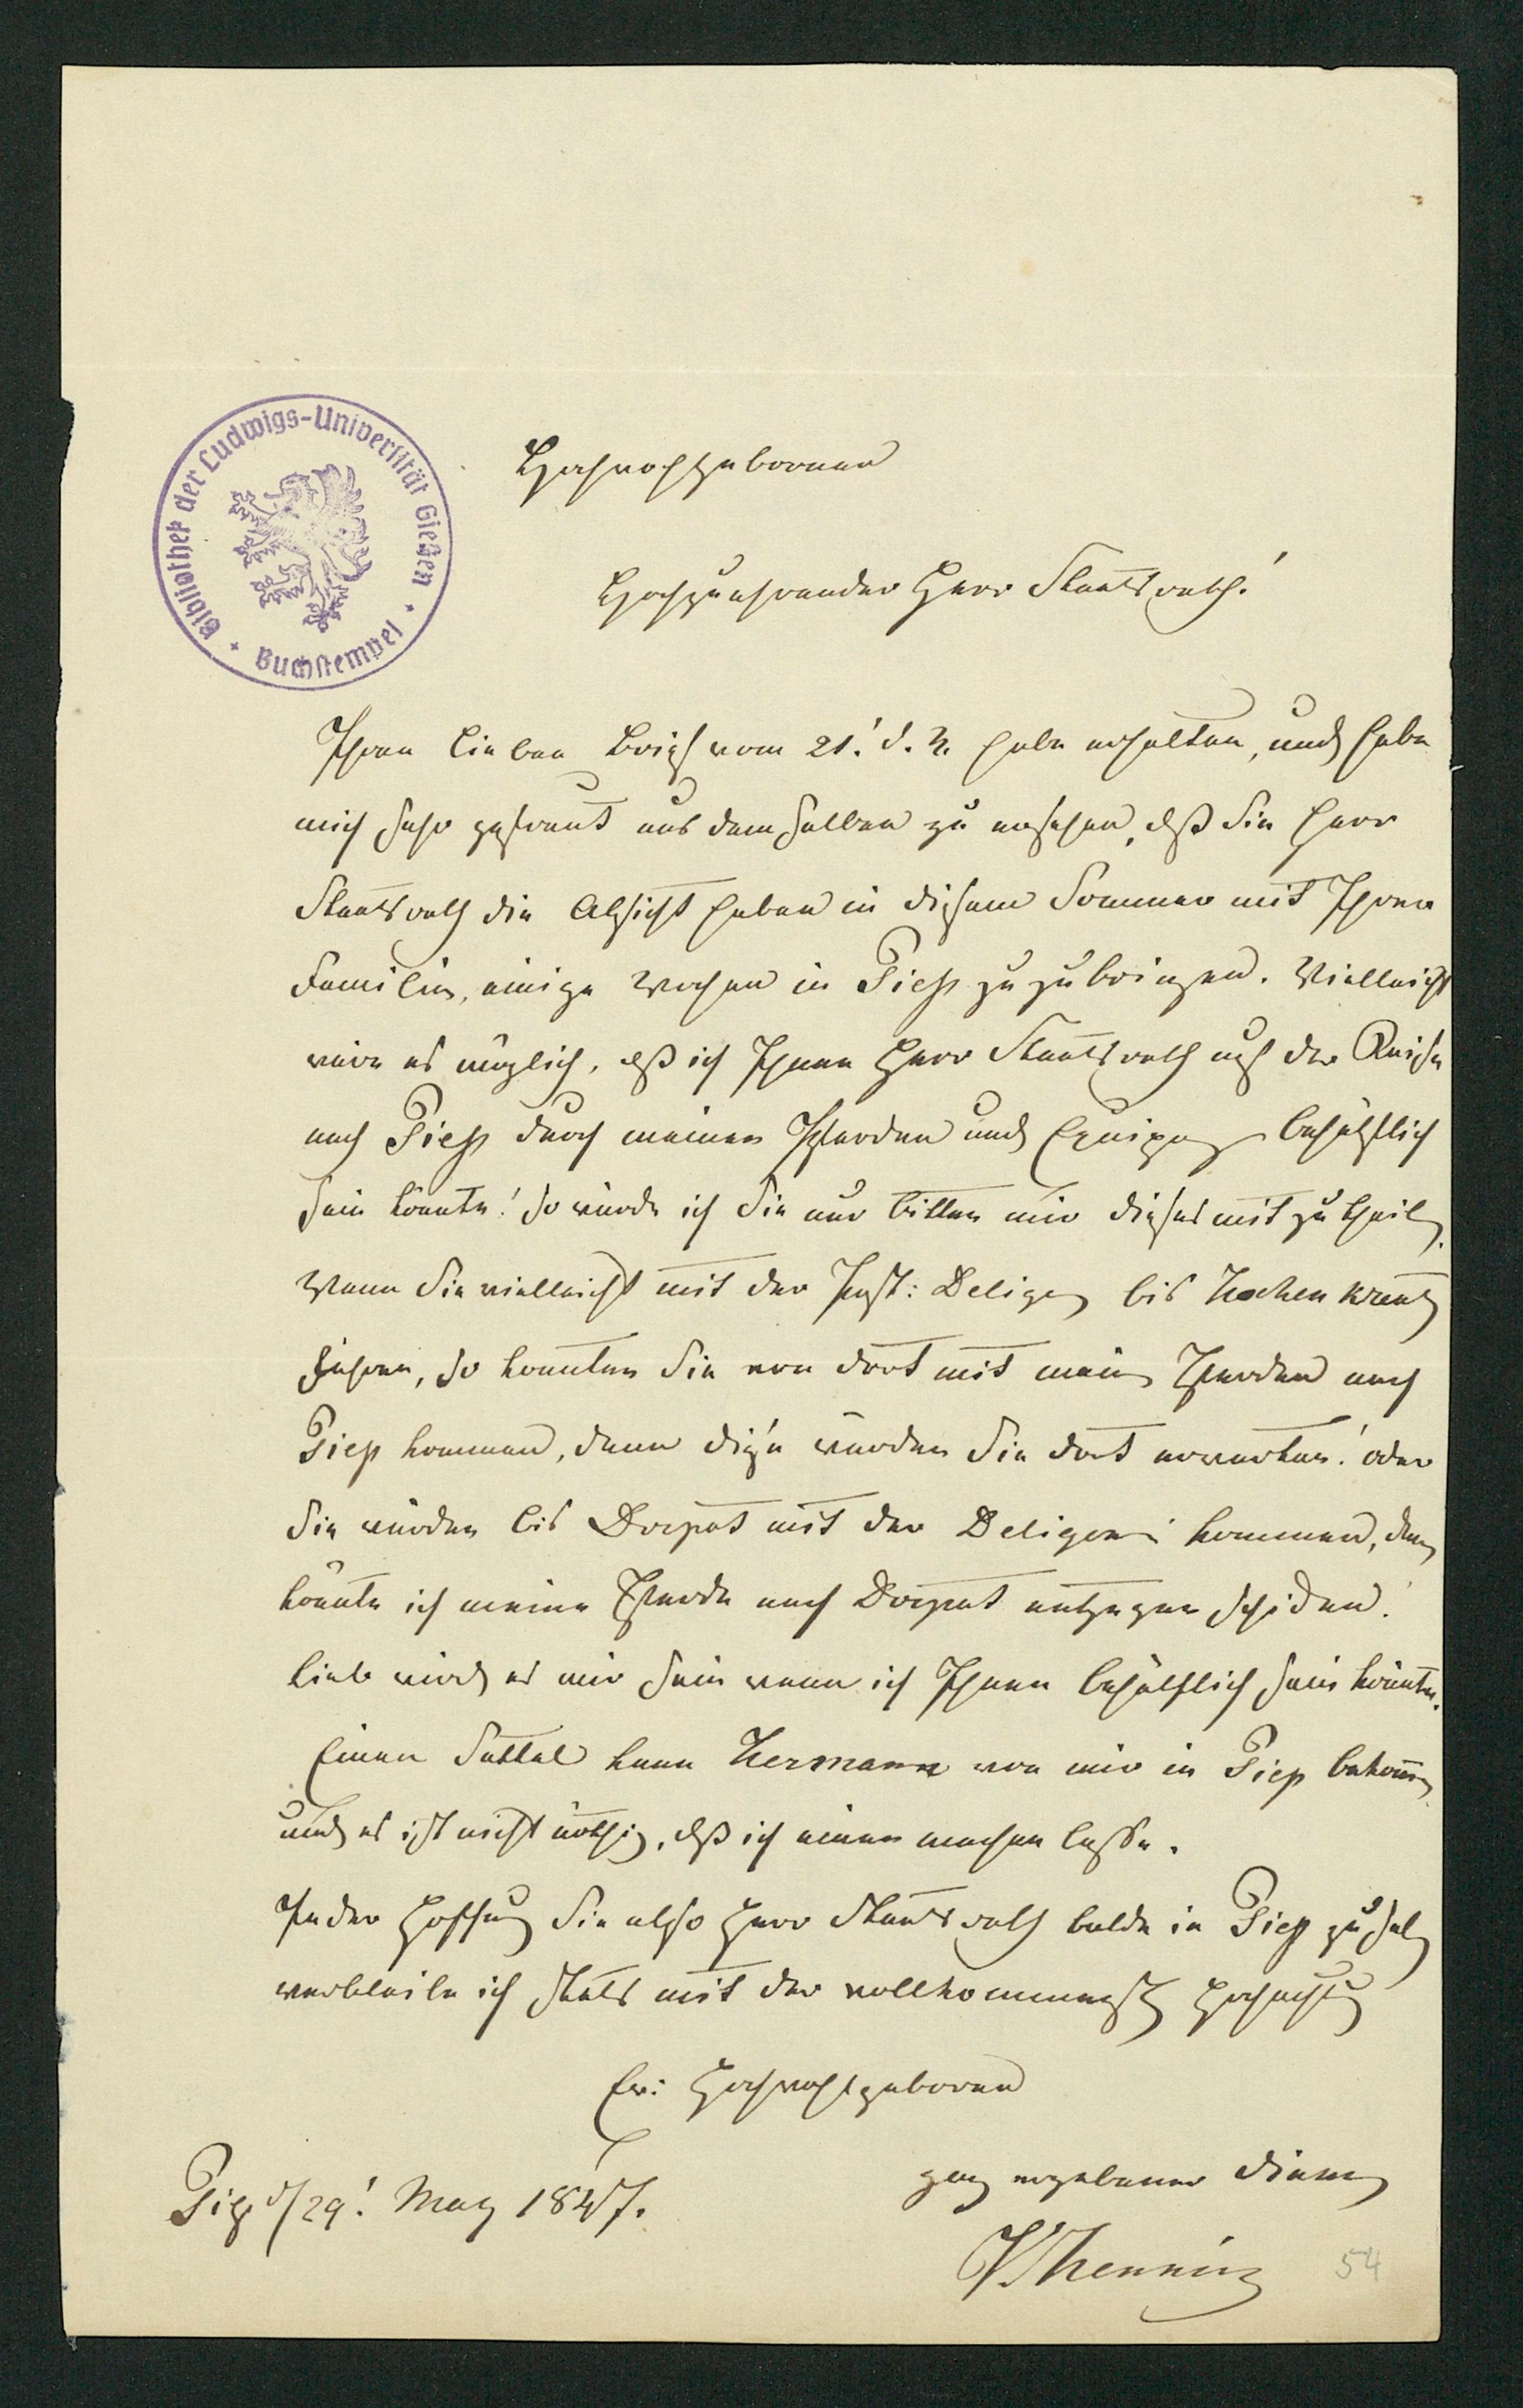 Bibliothek der Ludwigs-Universität Gießen
Buchstempel
Hochwohlgeborner
Hochzuehrender Herr Staatsrath!
Ihren lieben Brief vom 21! d. M. habe erhalten, und habe
mich sehr gefreut aus demselben zu ersehen, dß Sie Herr
Staatsrath die Absicht haben in diesem Sommer mit Ihrer
Familie, einige Wochen in Piep zu zubringen. Vielleicht
wäre es möglich, dß ich Ihnen Herr Staatsrath auf der Reise
nach Piep durch meinen Pferden und Equipage behülflich
sein könnte! so würde ich Sie nur bitten mir dieses mit zu theilen.
Wenn Sie vielleicht mit der Post: Deligen bis Hohenkreutz
führen, so konnten Sie von dort mit meinen Pferden nach
Piep kommen, denn diese würden Sie dort erwarten! oder
Sie würden bis Dorpat mit der Deligence kommen, dann
könnte ich meine Pferde nach Dorpat entgegen schicken!
Lieb wird es mir sein wenn ich Ihnen behülflich sein könnte.
Einen Sattel kann Hermann von mir in Piep bekommen,
und es ist nicht nöthig, dß ich einen machen lasse.
In der Hoffnung Sie also Herr Staatsrath balde in Piep zu sehen
verbleibe ich stets mit der vollkommensten Hochachtung
Ew: Hochwohlgeboren
ganz ergebener Diener
Piep d/29! May 1847.
V. Henning
54